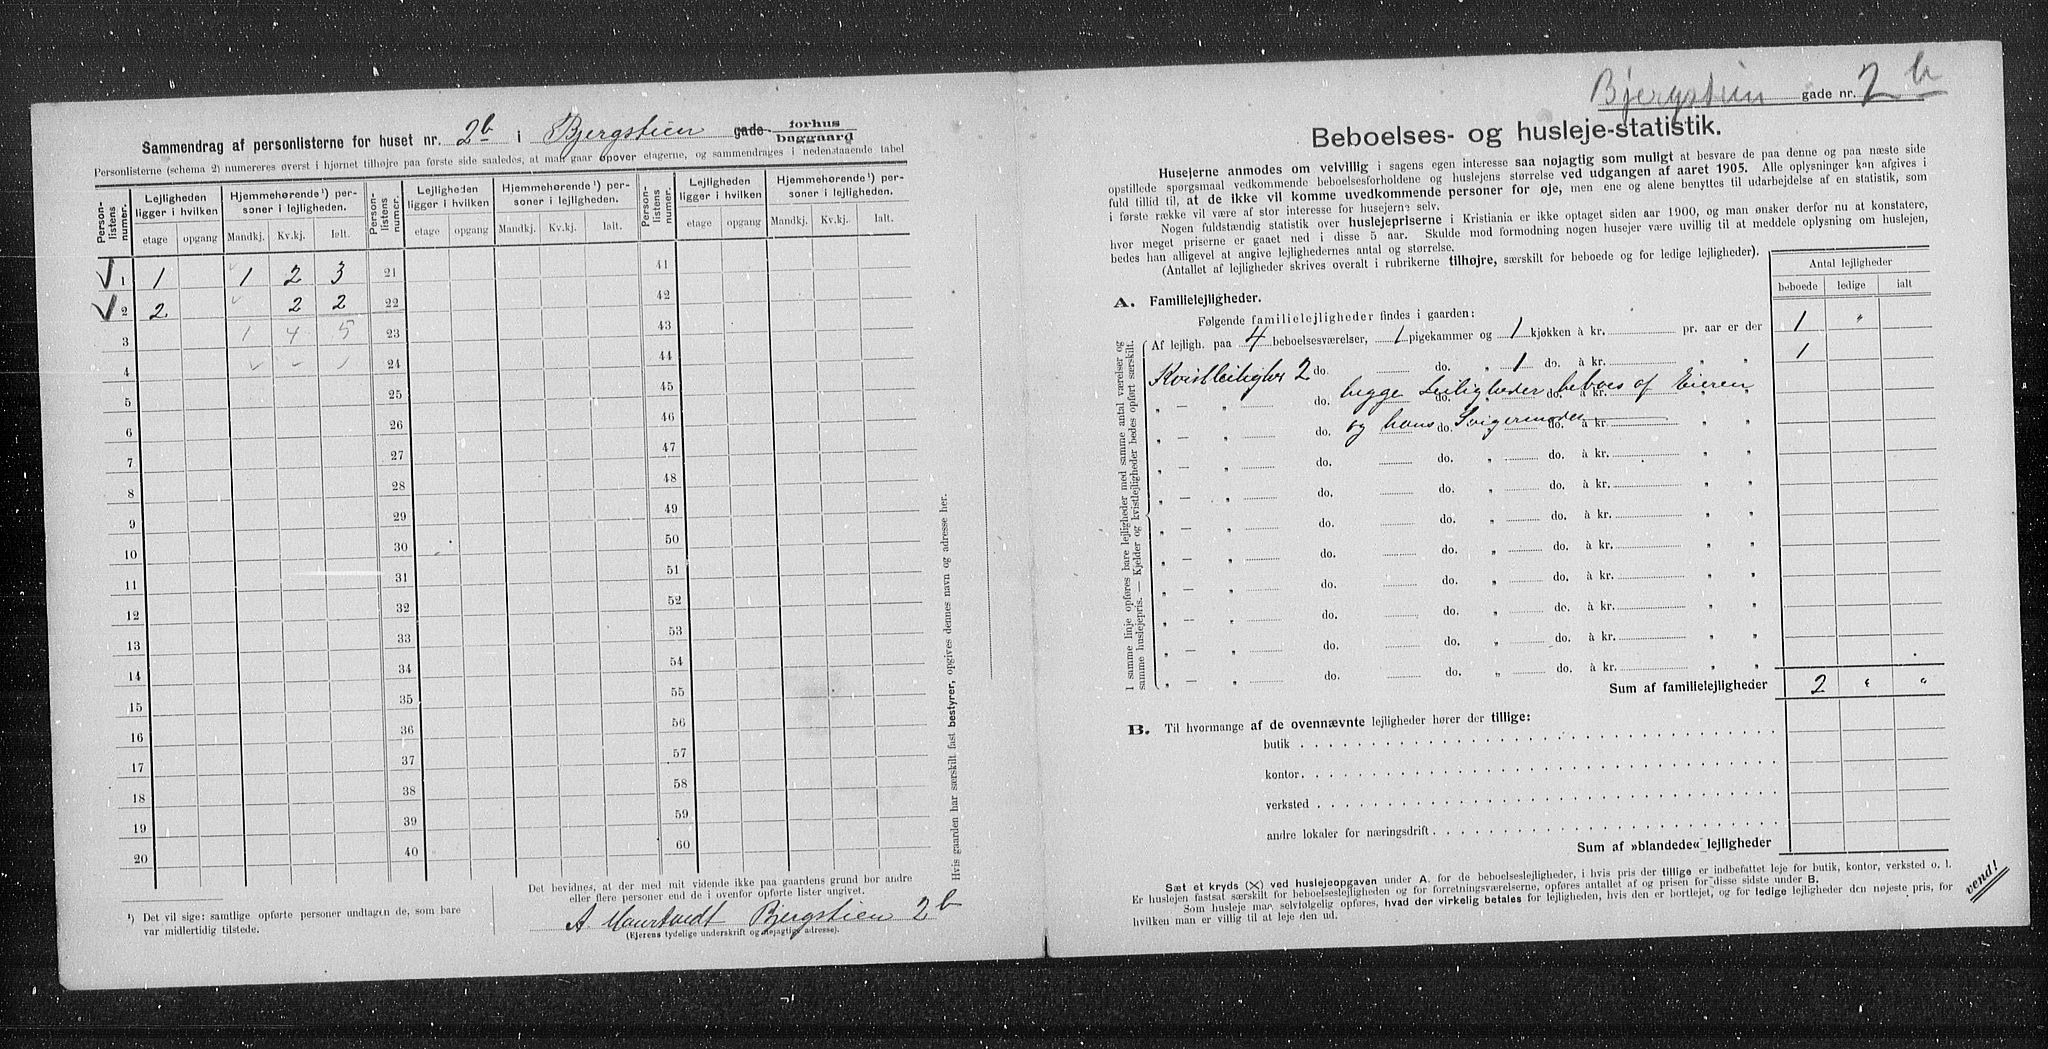 Sammendrag af personlisterne for huset nr. 2b i Bjergstien gade forhus baggaard
Personlisterne (schema 2) numereres øverst i hjørnet tilhøjre paa første side saaledes, at man gaar opover etagerne, og sammendrages i nedenstaaende tabel
Person-listens numer. Lejligheden ligger i hvilken etage opgang Hjemmehørende¹) personer i lejligheden. Mandkj. Kv.kj. Ialt.
Person-listens numer. Lejligheden ligger i hvilken etage opgang Hjemmehørende¹) personer i lejligheden. Mandkj. Kv.kj. Ialt.
Person-listens numer. Lejligheden ligger i hvilken etage opgang Hjemmehørende¹) personer i lejligheden. Mandkj. Kv.kj. Ialt.
1 1 1 2 3 21 41
2 2 2 2 22 42
3 1 4 5 23 43
4 24 44
5 25 45
6 26 46
7 27 47
8 28 48
9 29 49
10 30 50
11 31 51
12 32 52
13 33 53
14 34 54
15 35 55
16 36 56
17 37 57
18 38 58
19 39 59
20 40 60
¹) Det vil sige: samtlige opførte personer undtagen de, som bare
var midlertidig tilstede.
Det bevidnes, at der med mit vidende ikke paa gaardens grund bor andre
eller flere personer end de i ovenfor opførte lister angivet.
A. Bjergstien 2b
(Ejerens tydelige underskrift og nøjagtige adresse).
Hvis gaarden har særskilt fast bestyrer, opgives dennes navn og adresse her.
Bjergstien gade nr. 2b
Beboelses- og husleje-statistik.
Husejerne anmodes om velvillig i sagens egen interesse saa nøjagtig som muligt at besvare de paa denne og paa næste side
opstillede spørgsmaal vedkommende beboelsesforholdene og huslejens størrelse ved udgangen af aaret 1905. Alle oplysninger kan afgives i
fuld tillid til, at de ikke vil komme uvedkommende personer for øje, men ene og alene benyttes til udarbejdelse af en statistik, som
i første række vil være af stor interesse for husejerne selv.
Nogen fuldstændig statistik over huslejepriserne i Kristiania er ikke optaget siden aar 1900, og man ønsker derfor nu at konstatere,
hvor meget priserne er gaaet ned i disse 5 aar. Skulde mod formodning nogen husejer være uvillig til at meddele oplysning om huslejen,
bedes han alligevel at angive lejlighedernes antal og størrelse.
(Antallet af lejligheder skrives overalt i rubrikerne tilhøjre, særskilt for beboede og for ledige lejligheder).
Antal lejligheder
beboede ledige ialt
A. Familielejligheder.
Følgende familielejligheder findes i gaarden:
Af lejligh. paa 4 beboelsesværelser, 1 pigekammer og 1 kjøkken à kr. pr. aar er der 1 "
Kvistleilighet 2 do. do. 1 do. à kr. " " 1
" — " do. do. " do. à kr. " "
begge Leiligheder beboes af Eieren
" — " do. do. do. à kr. " "
og hans Svigermoder
" — " do. do. " do. à kr. " "
" — " do. do. " do. à kr. " "
" — " do. do. " do. à kr. " "
" — " do. do. " do. à kr. " "
" — " do. do. " do. à kr. " "
" — " do. do. " do. à kr. " "
" — " do. do. " do. à kr. " "
" — " do. do. " do. à kr. " "
Sum af familielejligheder 2 " "
I samme linje opføres bare lejligheder med samme antal værelser og
samme huslejepris. — Kjelder og kvistlejligheder bedes opført særskilt.
B. Til hvormange af de ovennævnte lejligheder hører der tillige:
butik
kontor
verksted
andre lokaler for næringsdrift
Sum af »blandede« lejligheder
Sæt et kryds (×) ved huslejeopgaven under A. for de beboelseslejligheder, i hvis pris der tillige er indbefattet leje for butik, kontor, verksted o. l.
Er huslejen fastsat særskilt for beboelseslejligheden og for forretningsværelserne, opføres antallet af og prisen for disse sidste under B.
Som husleje maa selvfølgelig opføres, hvad der virkelig betales for lejligheden, hvis den er bortlejet, og for ledige lejligheder den nøjeste pris, for
hvilken man er villig til at leje den ud.
vend!